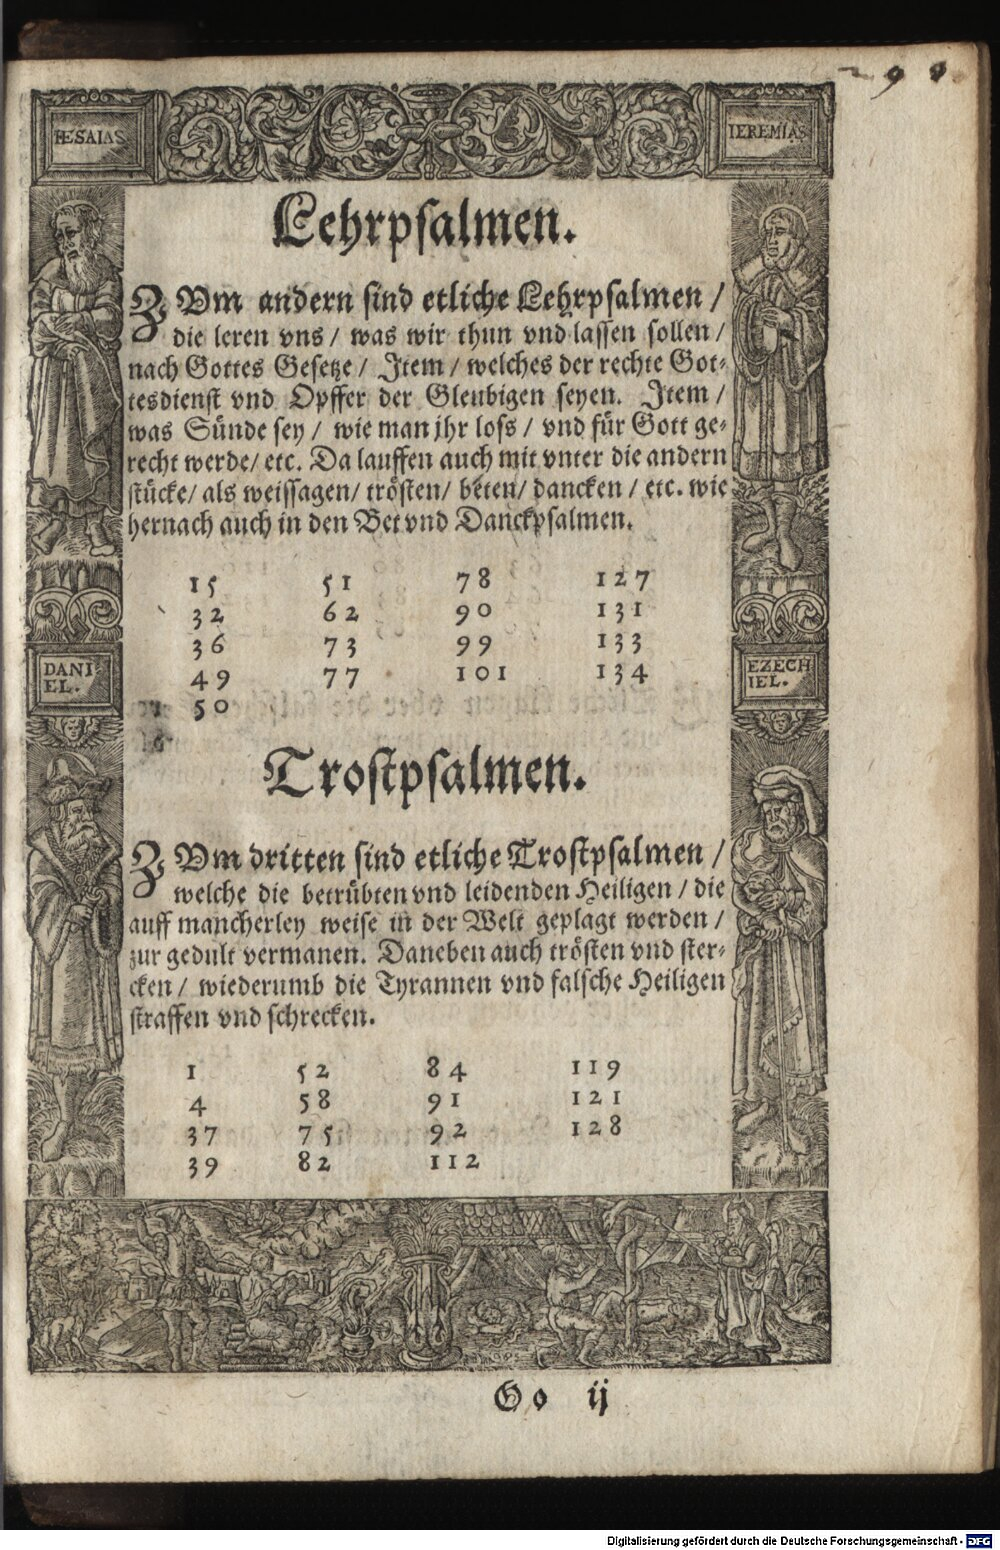 290
IESAIAS
IEREMIAS
Lehrpsalmen.
ZVm andern sind etliche Lehrpsalmen /
die leren vns / was wir thun vnd lassen sollen /
nach Gottes Gesetze / Item / welches der rechte Got-
tesdienst vnd Opffer der Gleubigen seyen. Item /
was Sünde sey / wie man jhr loß / vnd für Gott ge-
recht werde / etc. Da lauffen auch mit vnter die andern
stücke / als weissagen / trösten / beten / dancken / etc. wie
hernach auch in den Bet vnd Danckpsalmen.
15 51 78 127
32 62 90 131
36 73 99 133
49 77 101 134
50
DANI-
EL.
EZECH
IEL.
Trostpsalmen.
ZVm dritten sind etliche Trostpsalmen /
welche die betrübten vnd leidenden Heiligen / die
auff mancherley weise in der Welt geplagt werden /
zur gedult vermanen. Daneben auch trösten vnd ster-
cken / wiederumb die Tyrannen vnd falsche Heiligen
straffen vnd schrecken.
1 52 84 119
4 58 91 121
37 75 92 128
39 82 112
Oo ij
Digitalisierung gefördert durch die Deutsche Forschungsgemeinschaft - DFG